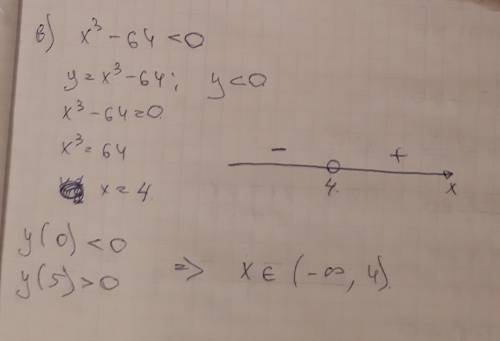 в) x³ - 64 < 0
y = x³ - 64; y < 0
x³ - 64 = 0
x³ = 64
x = 4.
- +
4. x
y(0) < 0
y(5) > 0
=> x ∈ (-∞, 4).